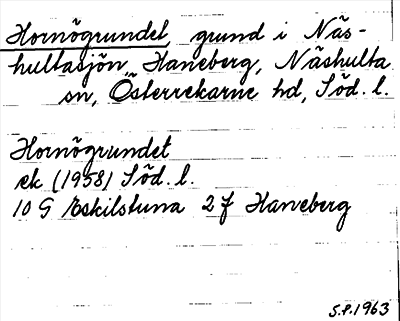 Hornögrundet, grund i Näs-
hultasjön, Haneberg, Näshulta
sn, Österrekarne hd, Söd. l.
Hornögrundet
ek (1958) Söd. l.
10 G Eskilstuna 2 f Haneberg
S.P. 1963